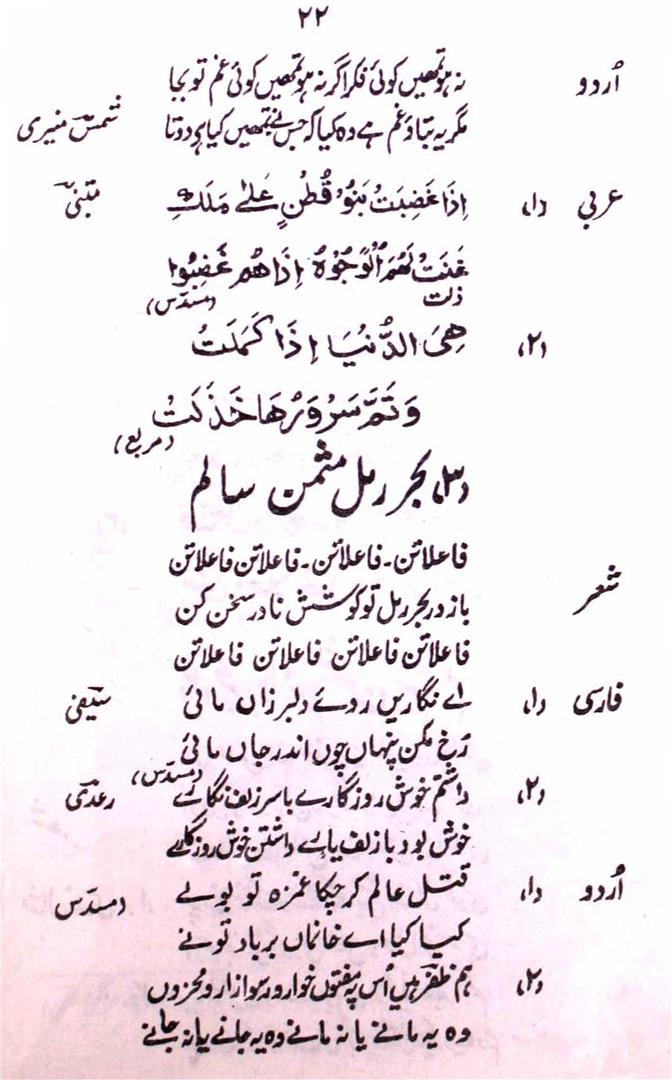 ۲۲
اُردو نہ ہو تمھیں کوئی فکر اگر نہ ہو تمھیں کوئی غم تو بجا
مگر یہ بتاؤ غم ہے وہ کیا کہ جس نے تمھیں کیا ہر دوتا شمسؔ منیری
عربی (۱) اِذَا غَضِبَتْ بَنُوْ قُطْنٍ عَلٰے مَلَكٍ متبنیؔ
عَنَتْ لَهُمَ الْوُجُوْهُ اِذَا هُم غَضِبُوا
ذلت (مسدّس)
(۲) هِیَ الدُّنْیَا اِذَا كَمَلَتْ
وَتَمَّ سَرُوَرُهَا خَذَلَتْ
(مربع)
(۳) بحر رمل مثمن سالم
فاعلاتن۔ فاعلاتن۔ فاعلاتن فاعلاتن
شعر باز در بحر رمل تو کوشش نادر سخن کن
فاعلاتن فاعلاتن فاعلاتن فاعلاتن
فارسی (۱) اے نگاریں روئے دلبر زاں مائی سیفیؔ
رُخ مکن پنہاں چوں اندر جاں مائی
(مسدّس)
(۲) داشتم خوش روزگارے باسر زلف نگارے رعدیؔ
خوش بود بازلف یارے داشتن خوش روزگارے
اُردو (۱) قتل عالم کر چکا غمزہ تو بولے (مسدّس
کیا کیا اے خانماں برباد تونے
(۲) ہم ظفرؔ ہیں اُس پہ مفتوں خوار و رسوا زار و محزوں
وہ یہ مانے یا نہ مانے وہ یہ جانے یا نہ جانے